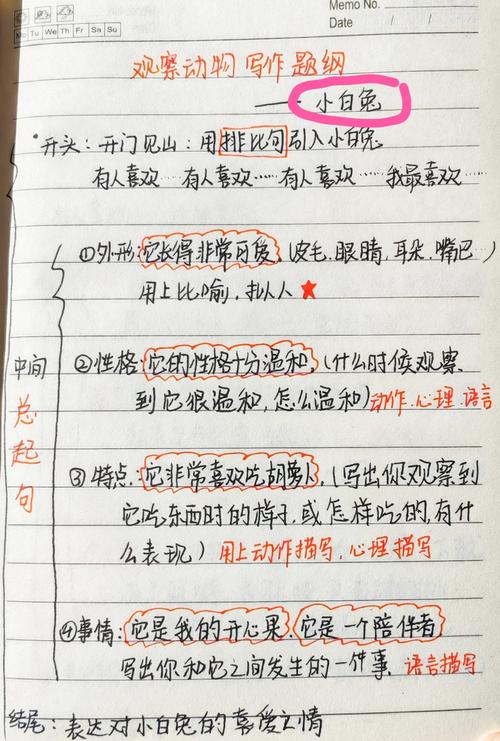 Memo No.
Mo Tu We Th Fr Sa Su
Date / /
观察动物写作题纲
——小白兔
*开头:开门见山:用排比句引入小白兔
有人喜欢……有人喜欢……有人喜欢……我最喜欢……
①外形:它长得非常可爱,(皮毛.眼睛,耳朵.嘴巴)
用上比喻,拟人人★
中间
总起句
②性格:它的性格十分温和,(什么时候观察
到它很温和,怎么温和)动作.心理.语言
③特点:它非常喜欢吃胡萝卜,(写出你观察到
它吃东西时的样子,或怎样吃的,有什
么表现)用上动作描写,心理描写
④事情:它是我的开心果.它是一个陪伴者
写出你和它之间发生的一件事.语言描写
结尾:表达对小白兔的喜爱之情